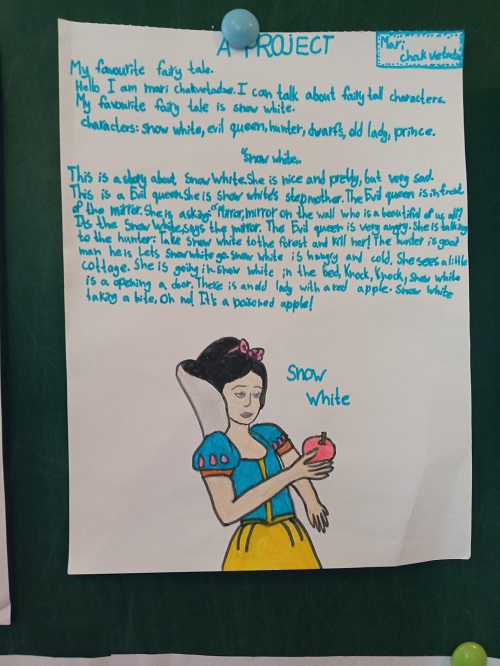 A PROJECT
Mari
chakvetadze
My favourite fairy tale.
Hello I am mari chakvetadze. I can talk about fairy tall characters.
My favourite fairy tale is snow white.
characters: snow white, evil queen, hunter, dwarfs, old lady, prince.
"Snow white"
This is a story about snow white. She is nice and pretty, but very sad.
This is a Evil queen. She is snow white's stepmother. The Evil queen is in front
of the mirror. She is asking: "Mirror, mirror on the wall who is a beautiful of us all?
It's the Snow White, says the mirror. The Evil queen is very angry. She is talking
to the hunter: Take snow white to the forest and kill her! The hunter is good
man he is Lets snow white go. snow white is hungry and cold. She sees a little
cottage. She is going in. Snow white in the bed, Knock, Knock, snow white
is a opening a door. There is an old lady with a red apple. Snow White
taking a bite, Oh no! It's a poisoned apple!
Snow
White